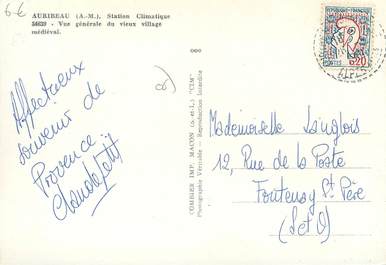 6€
AURIBEAU (A.-M.), Station Climatique
34639 - Vue générale du vieux village
médiéval.
Affectueux
souvenir de
Provence
Claudepetit
COMBIER IMP. MACON (S.-et-L.) "CIM"
Photographie Véritable - Reproduction Interdite
POSTES
0,20
Mademoiselle Langlois
12, Rue de la Poste
Fontenay St. Père
(S et O)